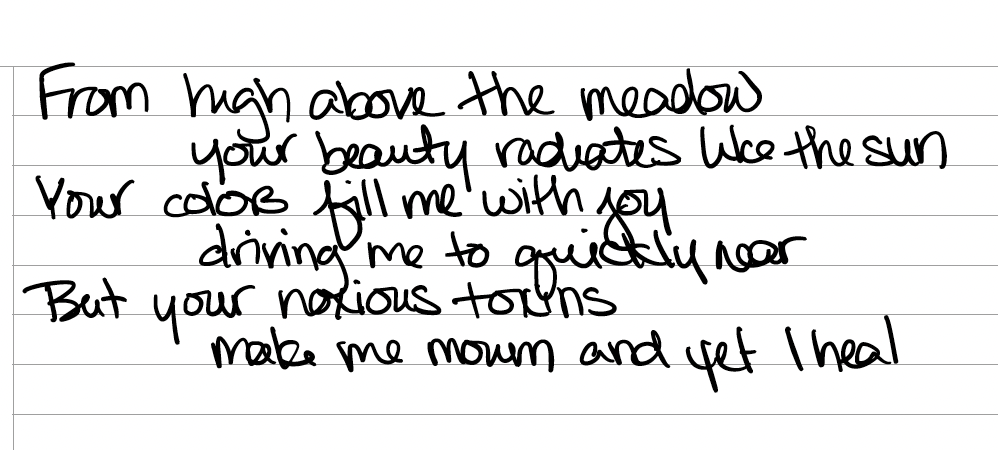 From high above the meadow
your beauty radiates like the sun
Your colors fill me with joy
driving me to quickly near
But your noxious toxins
make me mourn and yet I heal